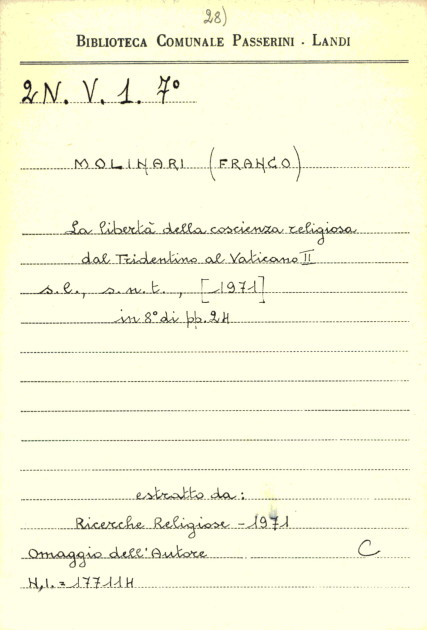 28)
BIBLIOTECA COMUNALE PASSERINI - LANDI
2N. V. 1. 7°
MOLINARI (FRANCO)
La libertà della coscienza religiosa
dal Tridentino al Vaticano II
s.l., s.n.t., [1971]
in 8° di pp. 24
estratto da:
Ricerche Religiose - 1971
Omaggio dell'Autore C
N.I. = 177114